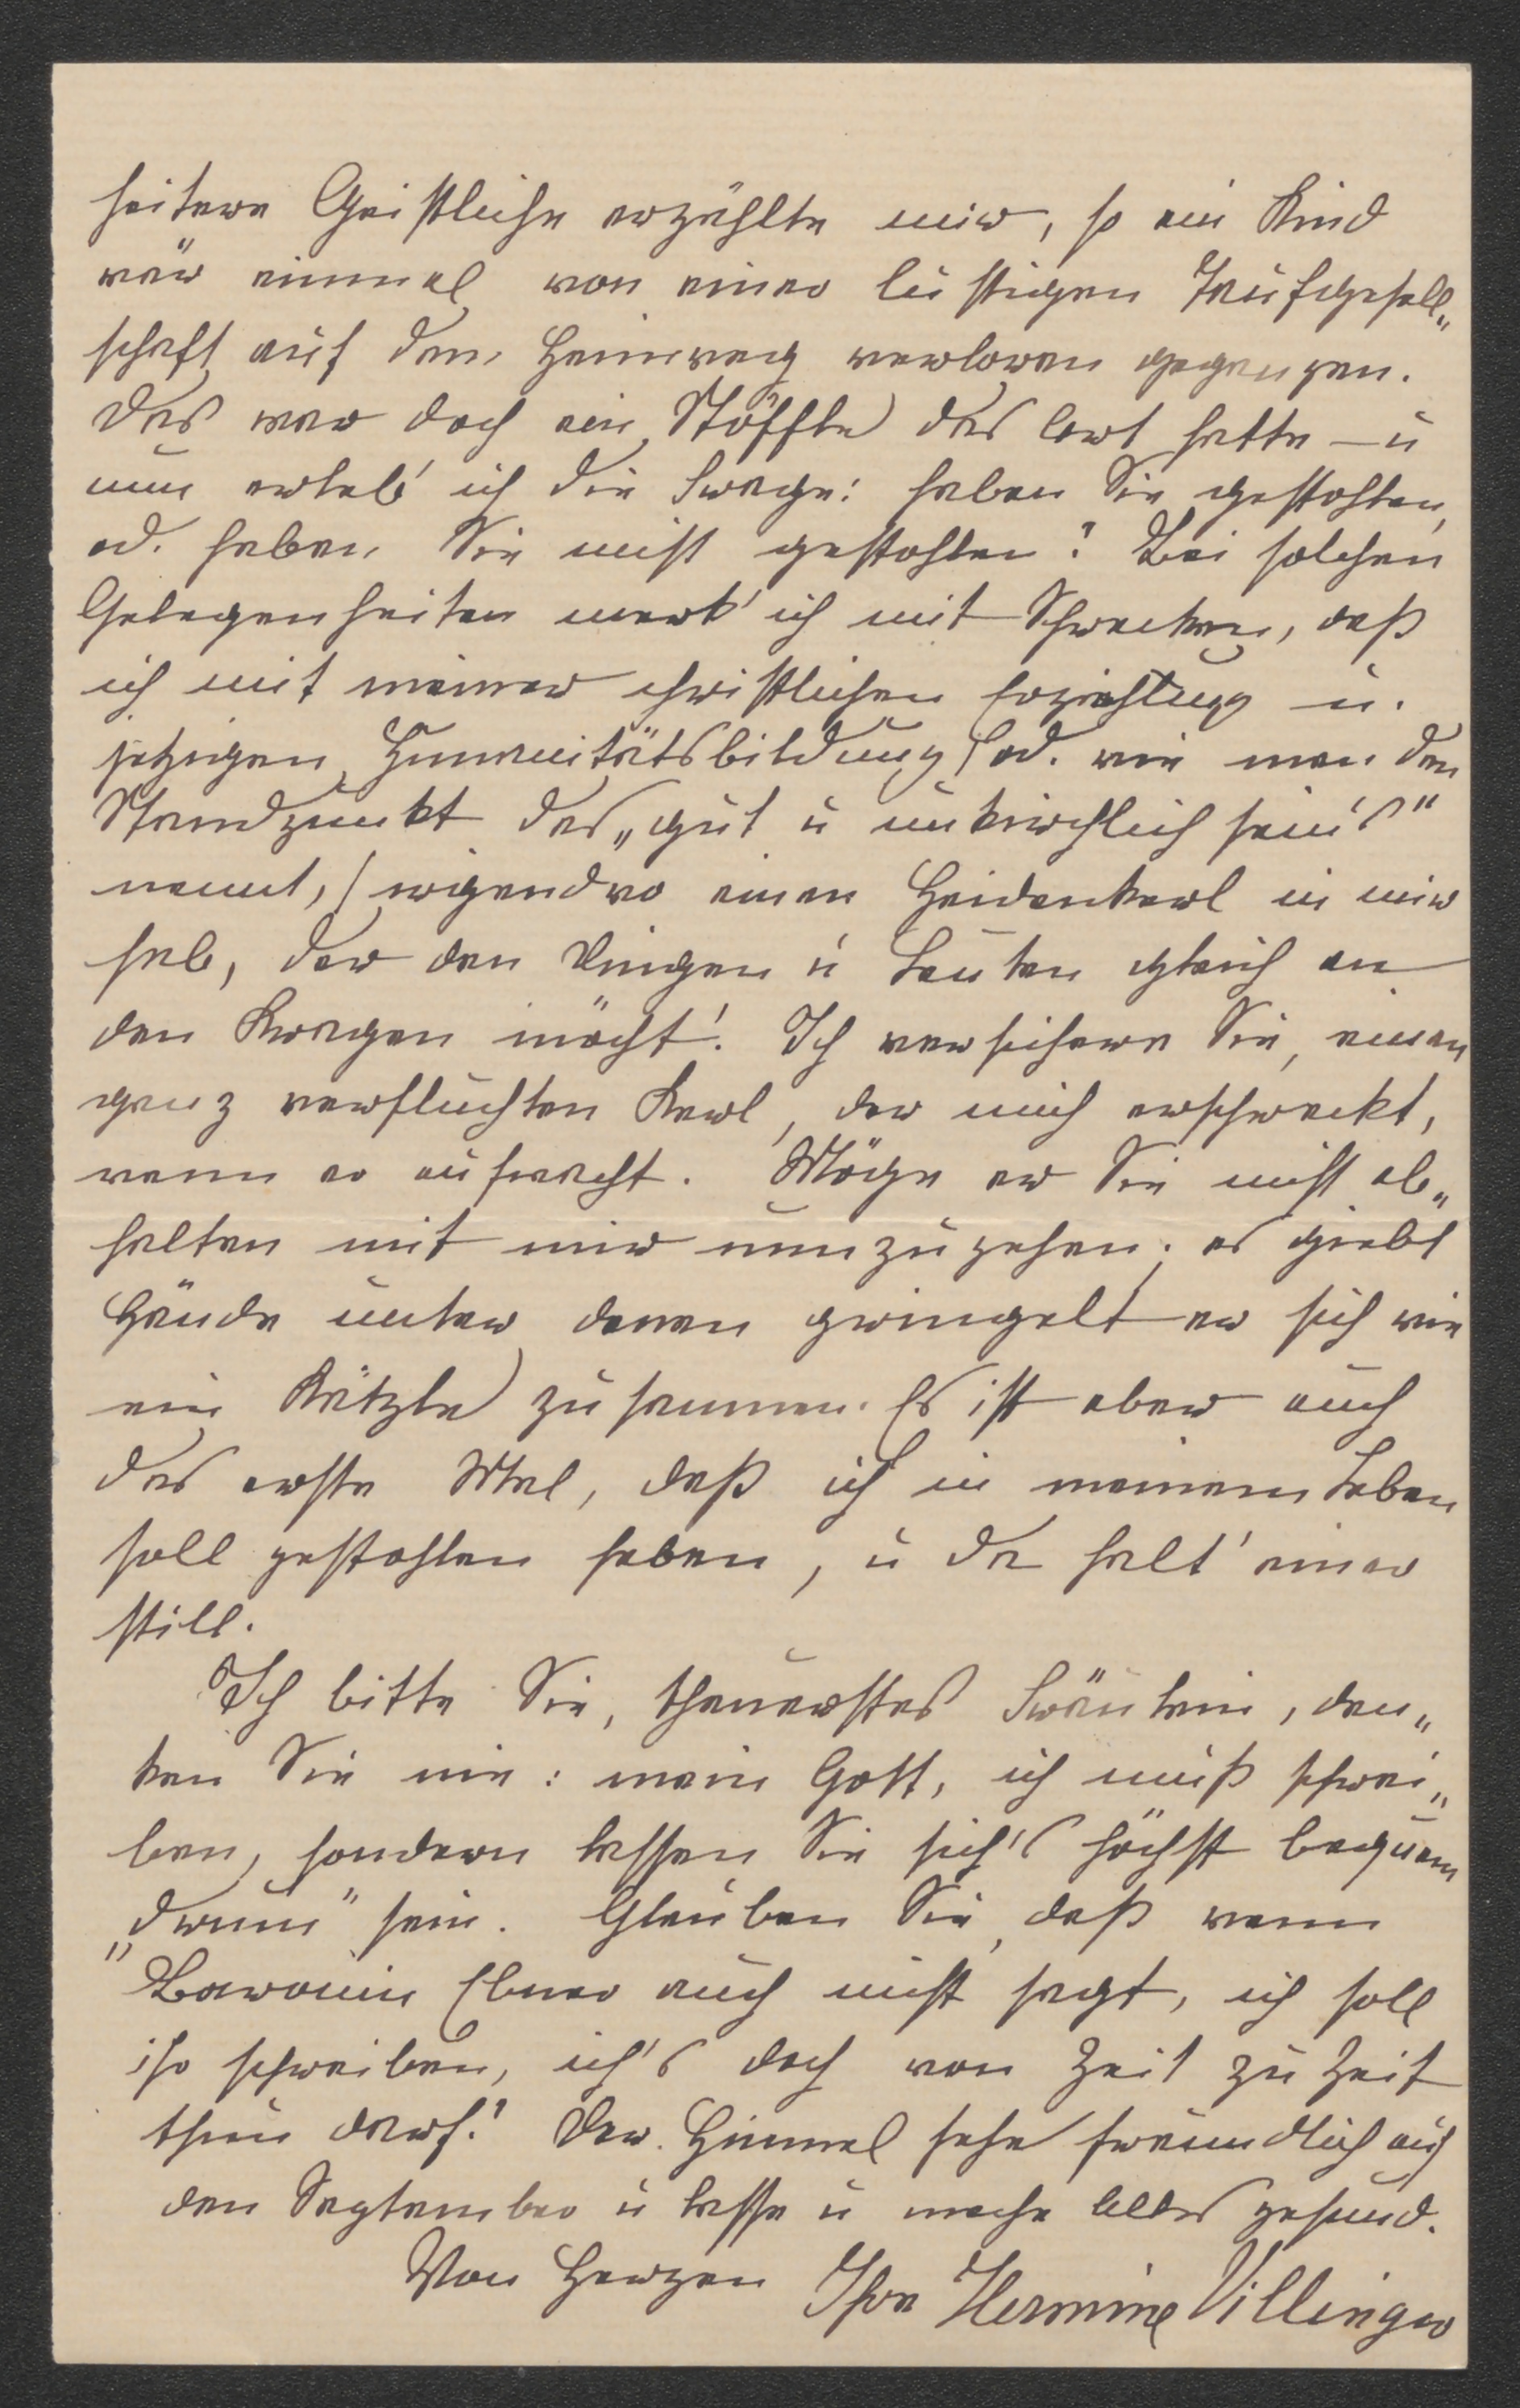 heitere Geistliche erzählte mir, so ein Kind
wär einmal von einer lustigen Taufgesell„
schaft auf dem Heimweg verloren gegangen.
Das war doch ein Stöffle das lert hatte – u
nun erleb' ich die Frage: haben Sie gestohlen,
od. haben Sie nicht gestohlen? Bei solchen
Gelegenheiten merk' ich mit Schrecken, daß
ich mit meiner christlichen Erziehung u.
jetzigen Humanitätsbildung (od. wie man den
Standpunkt des „gut u unkirchlich sein's"
nennt,) irgendwo einen Heidenkerl in mir
hab, der den Dingen u Leuten gleich an
den Kragen möcht'! Ich versichere Sie, einen
ganz verfluchten Kerl, der mich erschreckt,
wenn er aufwacht. Möge er Sie nicht ab„
halten mit mir umzugehen; es giebt
Hände unter denen gringelt er sich wie
ein Kätzle zusammen. Es ist aber auch
das erste Mal, daß ich in meinem Leben
soll gestohlen haben, u da halt' einer
still.
Ich bitte Sie, theuerstes Fräulein, den„
ken Sie nie: mein Gott, ich muß schrei„
ben, sondern lassen Sie sich's höchst bequem
„drum" sein. Glauben Sie, daß wenn
Baronin Ebner auch nicht sagt, ich soll
ihr schreiben, ich's doch von Zeit zu Zeit
thun darf? Der Himmel sehe freundlich auf
den September u lasse u mache Alles gesund.
Von Herzen Ihre Hermine Villinger